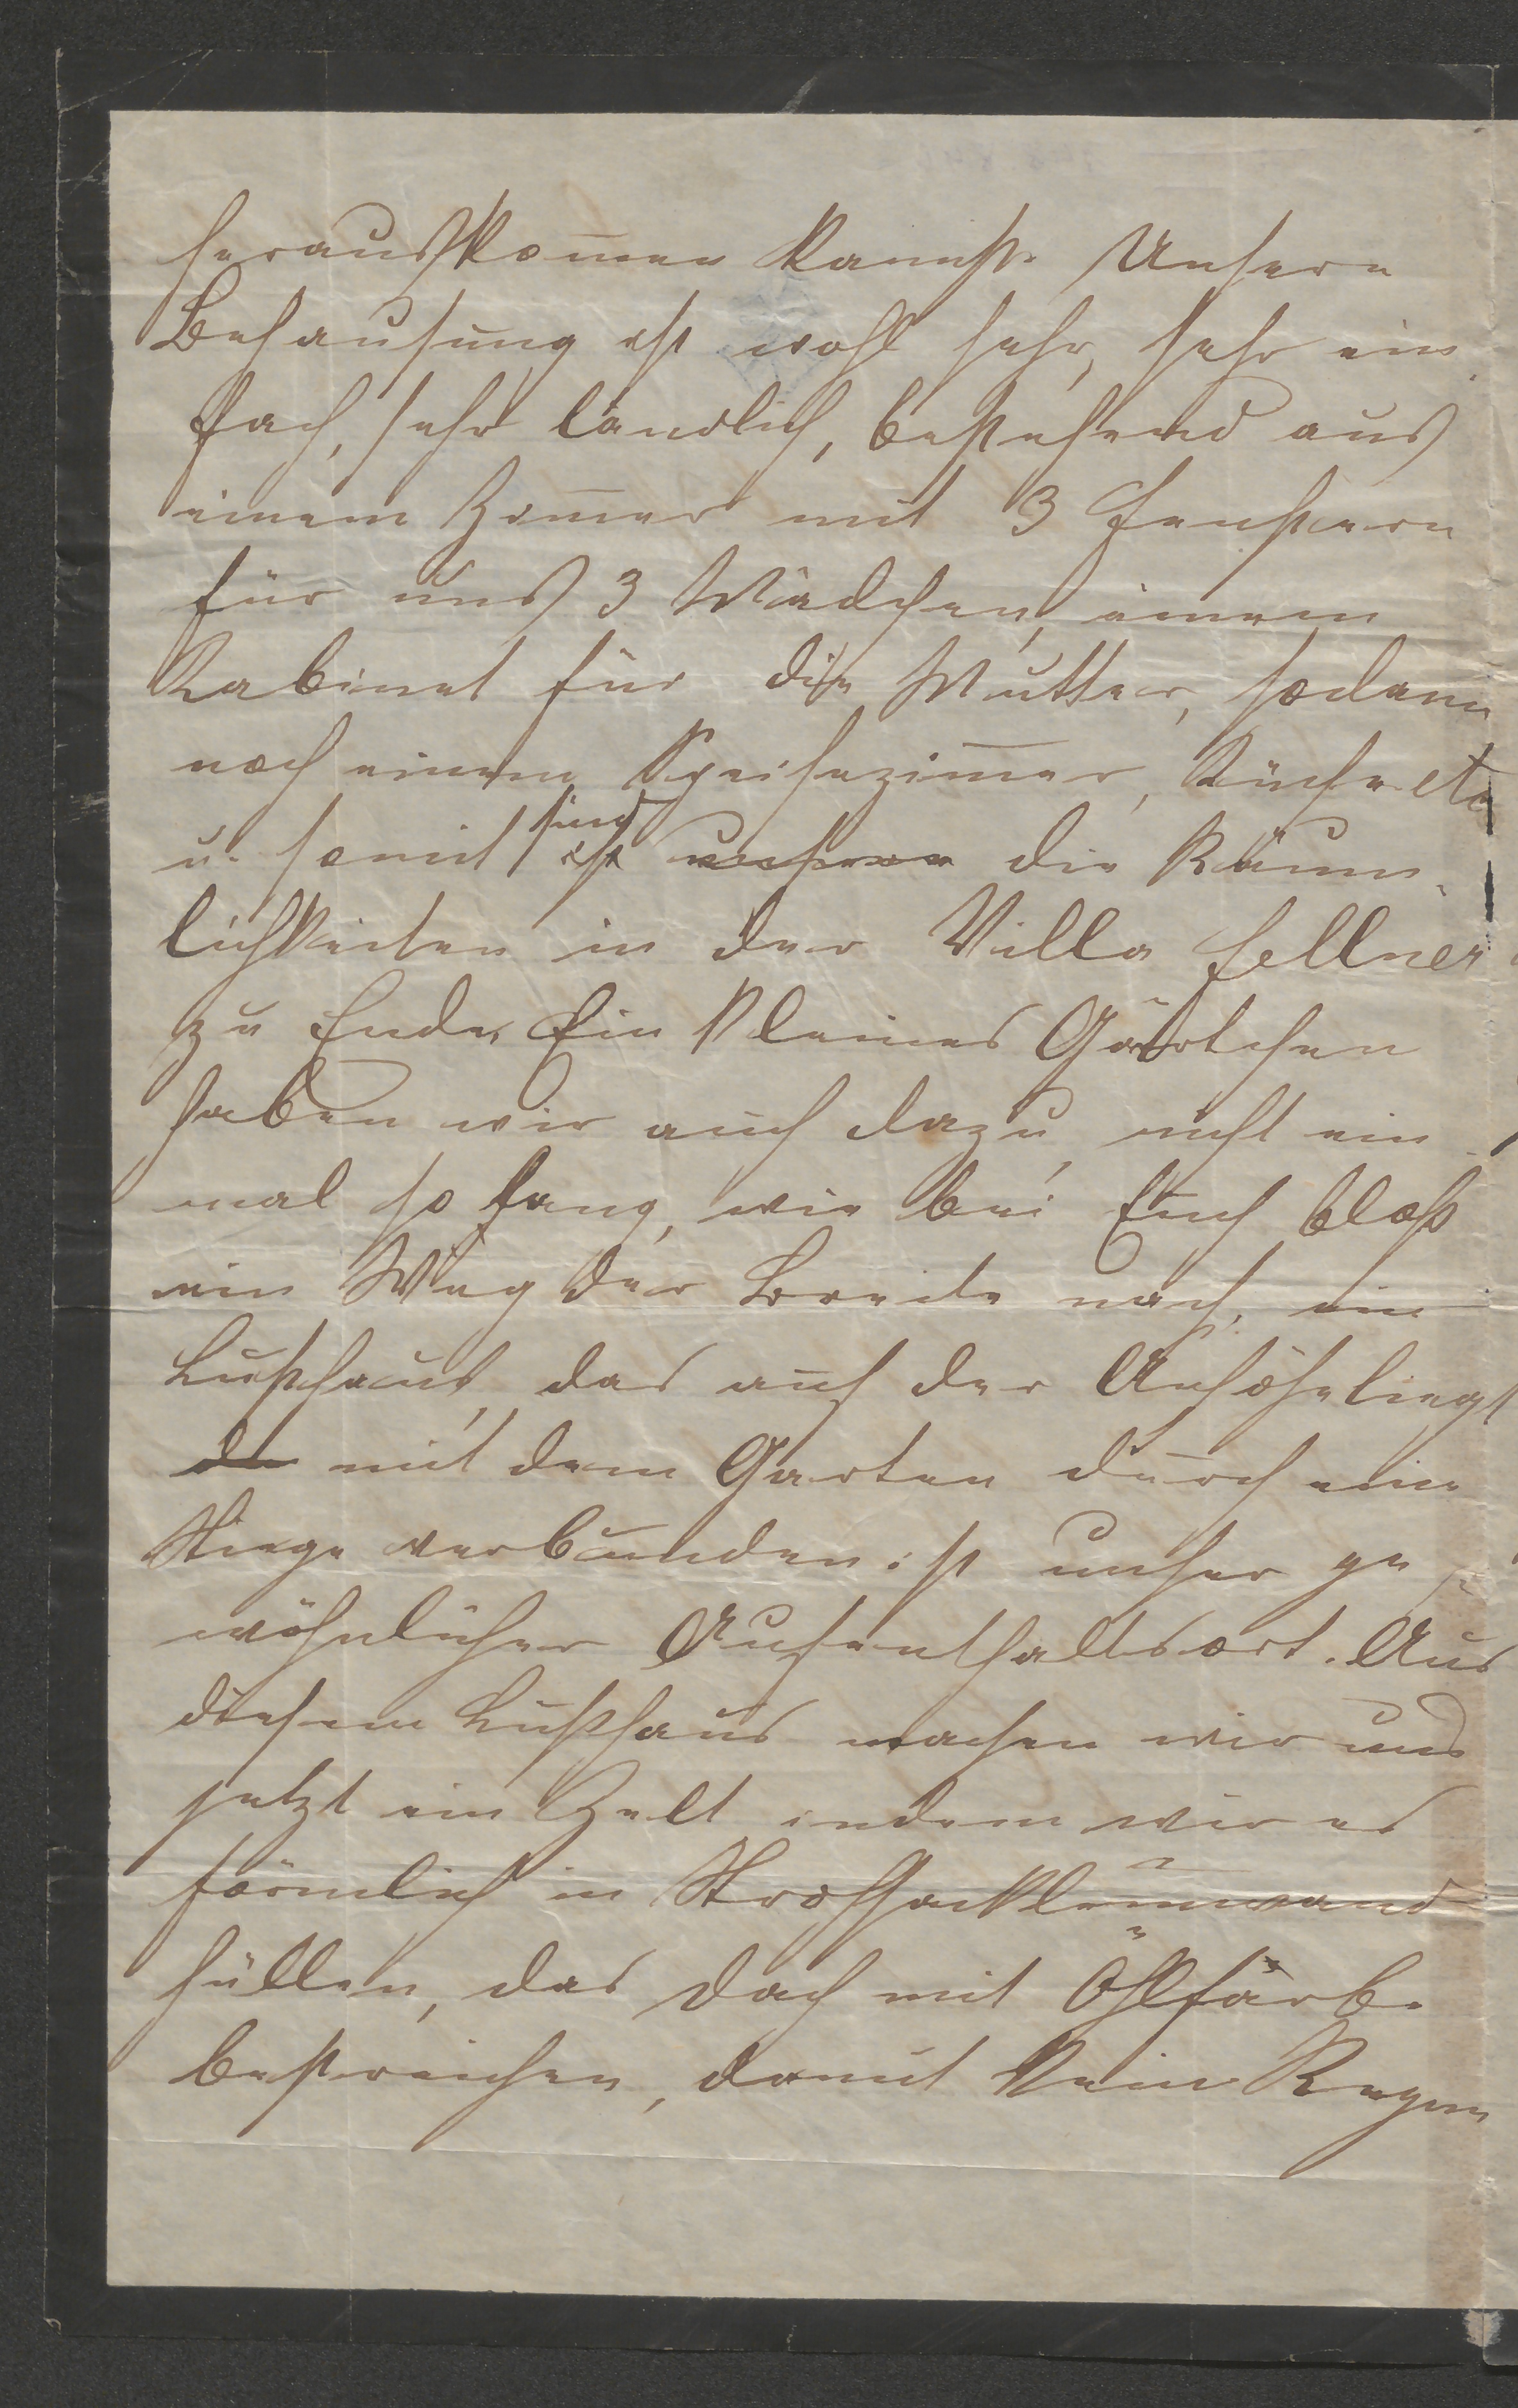 herauskom̅en kannst. Unsere
Behausung ist wohl sehr, sehr ein
fach, sehr ländlich, bestehend aus
einem Zim̅er mit 3 Fenstern
für uns 3 Mädchen, einem
Kabinet für die Mutter, sodann
noch einem Speisezim̅er, Küche etc
u. somit sind ist unsere die Räum-
lichkeiten in der Villa Fellner
zu Ende. Ein kleines Gärtchen
haben wir auch dazu, nicht ein
mal so lang, wie bei Euch bloß
ein Weg der Breite nach, ein
Lusthaus, das auf der Anhöhe liegt
de mit dem Garten durch eine
Stiege verbunden ist unser ge
wöhnlicher Aufenthaltsort. Aus
diesem Lusthaus machen wir uns
jetzt ein Zelt indem wir es
förmlich in Strohsackleinwand
hüllen, das Dach mit Öhlfarbe
bestreichen, damit kein Regen